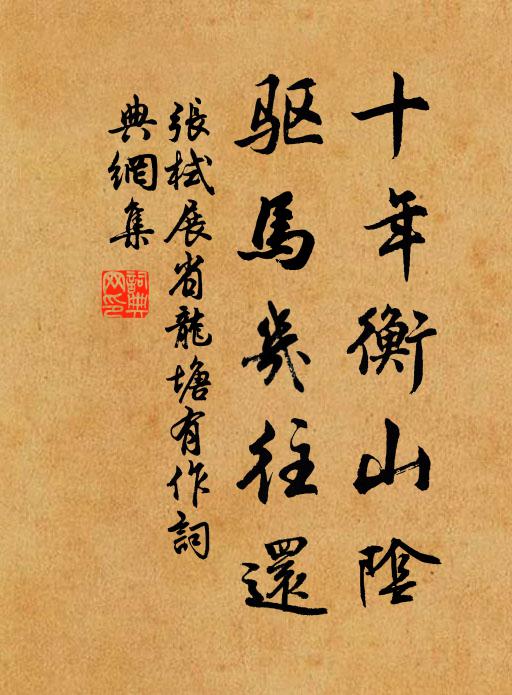 十年衡山陰
驱馬幾往還
張栻展省龍塘有作詞
典網集
詞典
网印